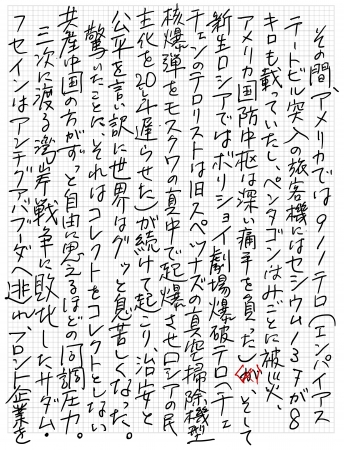 その間、アメリカでは９１１テロ(エンパイアス
テートビル突入の旅客機にはセシウム１３７が８
キロも載っていたし、ペンタゴンはみごとに被災、
アメリカ国防中枢は深い痛手を負った)が、そして
新生ロシアではボリショイ劇場爆破テロ(チェ
チェンのテロリストは旧スペツナズの真空掃除機型
核爆弾をモスクワの真中で起爆させロシアの民
主化を20年遅らせた)が続けて起こり、治安と
公平を言い訳に世界はグッと見苦しくなった。
驚いたことに、それはコレクトをコレクトとしない
共産中国の方がずっと自由に思えるほどの同調圧力。
三次に渡る湾岸戦争に敗北したサダム・
フセインはアンチグアバブーダへ逃れ、フロント企業を